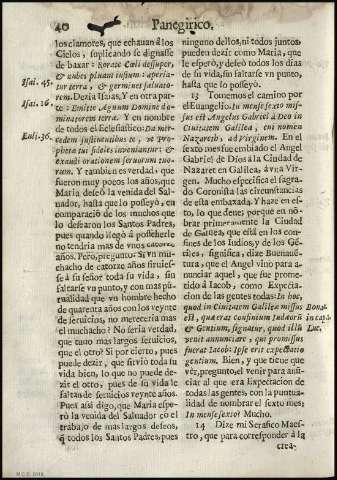 40 Panegirico,
los clamores, que echauan à los
Cielos, suplicando se dignasse
de baxar: Rorate Cœli desuper,
Isai. 45. & nubes pluant iustum: aperia-
tur terra, & germinet saluato-
rem. Dezia Isaias, Y en otra par-
Isai. 16. te: Emitte Agnum Domine do-
minatorem terræ. Y en nombre
de todos el Eclesiastico: Da mer-
Ecli. 36. cedem sustinentibus te, vt Pro-
phetæ tui fideles inveniantur: &
exaudi orationem seruorum tuo-
rum. Y tambien es verdad, que
fueron muy pocos los años, que
Maria deseò la venida del Sal-
uador, hasta que lo posseyò, en
comparaciõ de los muchos que
lo desearon los Santos Padres,
pues quando llegò à posseherle
no tendria mas de vnos catorze
años. Pero, pregunto: Si vn mu-
chacho de catorze años siruies-
se à su señor toda su vida, sin
faltarse vn punto, y con mas pũ-
tualidad que vn hombre hecho
de quarenta años con los veynte
de seruicios, no mereceria mas
el muchacho? No seria verdad,
que tuuo mas largos seruicios,
que el otro? Si por cierto, pues
puede dezir, que siruiò toda su
vida bien, lo que no puede de-
zir el otro, pues de su vida le
faltan de seruicios veynte años.
Pues assi digo, que Maria espe-
rò la venida del Saluador cõ el
trabajo de mas largos deseos,
q̃ todos los Santos Padres, pues
ninguno dellos, ni todos juntos,
pueden dezir como Maria, que
le esperò, y deseò todos los dias
de su vida, sin faltarse vn punto,
hasta que lo posseyò.
13 Tomemos el camino por
el Euangelio. In mense sexto mis-
sus est Angelus Gabriel à Deo in
Ciuitatem Galileæ, cui nomen
Nazareth, ad virginem. En el
sexto mes fue embiado el Angel
Gabriel de Dios à la Ciudad de
Nazaret en Galilea, à vna Vir-
gen. Mucho especifica el sagra-
do Coronista las circunstancias
de esta embaxada. Y haze en es-
to, lo que deue; porque en nõ-
brar primeramente la Ciudad
de Galilea, que està en los con-
fines de los Iudios, y de los Gẽ-
tiles, significa, dize Buenauẽ-
tura, que el Angel vino para a-
nunciar aquel, que fue prome-
tido à Iacob, como Expecta-
cion de las gentes todas: In hoc,
quod in Ciuitatem Galileæ missus Bona.
est, quæ erat confinium Iudæorũ in cap. 1.
& Gentium, signatur, quod illũ Luc.
venit annunciare, qui promissus
fuerat Iacob: Ipse erit expectatio
gentium. Bien, y que tiene que
vèr, pregunto, el venir para anũ-
ciar al que era Expectacion de
todas las gentes, con la puntua-
lidad de nombrar el sexto mes:
In mense sexto? Mucho.
14 Dize mi Serafico Maes-
tro, que para corresponder à la
crea-